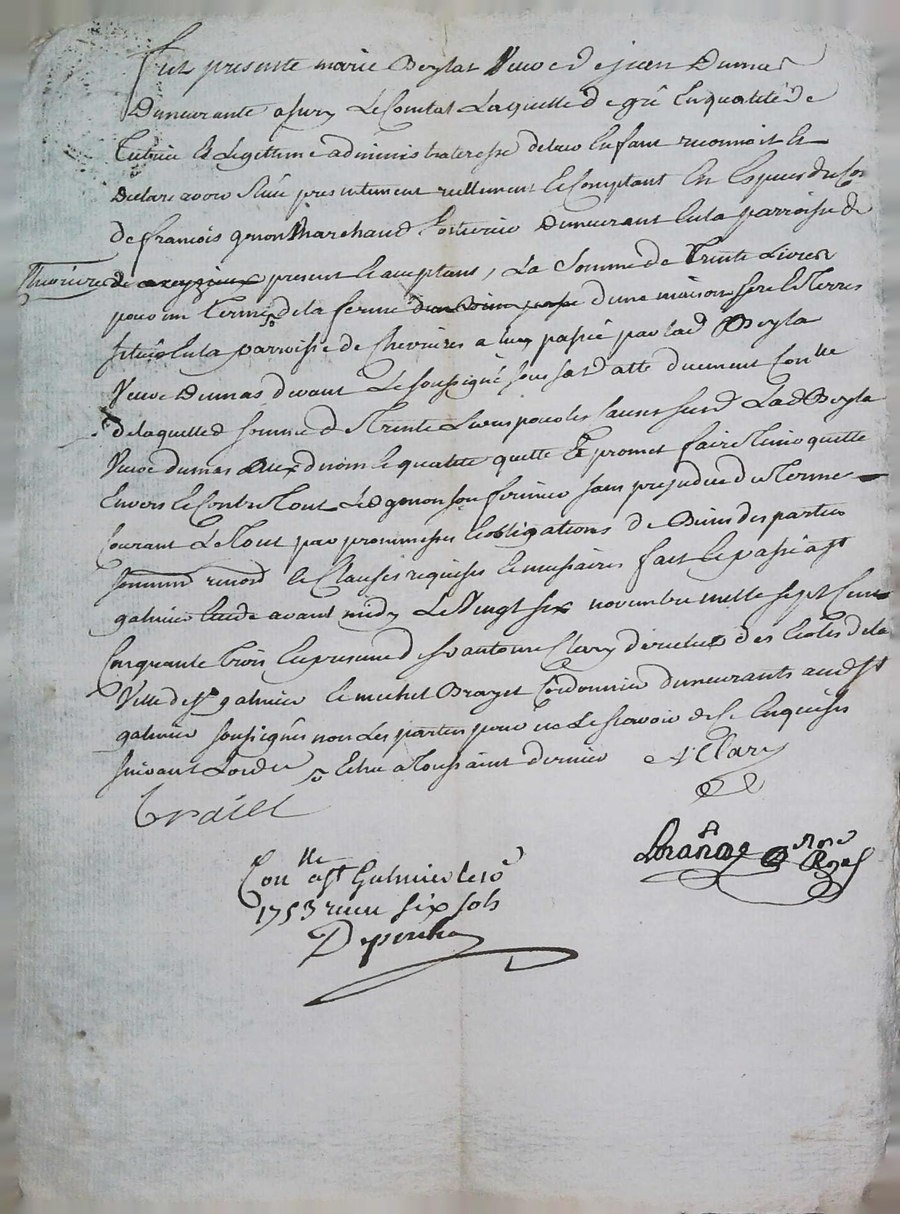 fut presente marie Beylat Veuve de jean Dumas
Demeurante a sury Le Comtal Laquelle de gré En qualité de
Tutrice Et Legittime administrateresse de leur Enfant reconnoit Et
Declare avoir Eüe presentement reellement Et Comptant En Especes du Cor
de françois genon Marchand hotellier Demeurant En la parroisse de
de present Et acceptant, La Somme de Trente Livres
pour un Terme de la ferme d'une maison Et Terres
situés En la parroisse de Chevrieres a luy passée par lad Beyla
Veuve Dumas devant Le soussigné sous sa datte duement Con lle
de laquelle somme de Trente Livres pour les causes susd Lad Beyla
Veuve dumas auxd nom Et qualité quitte Et promet faire Tenir quitte
Envers Et Contre Tout Led genon son fermier sans prejudice du Terme
Courant Le Tout par promesses Et obligations de Biens des parties
renond Et Clauses requises Et necessaires fait Et passé a st
galmier Etude avant midy Le Vingt six novembre mille sept Cent
Cinquante Trois En presence de sr antoine Clary directeur des Ecoles de la
Ville de st galmier Et michel Brazet Cordonnier demeurants aud st
galmier soussignés non Les parties pour ne Le sçavoir de ce Enquises
suivant L'ordce Echu a Toussaint dernier A Clary
Con lle a st Galmier le 10e
1753 reçu six sols